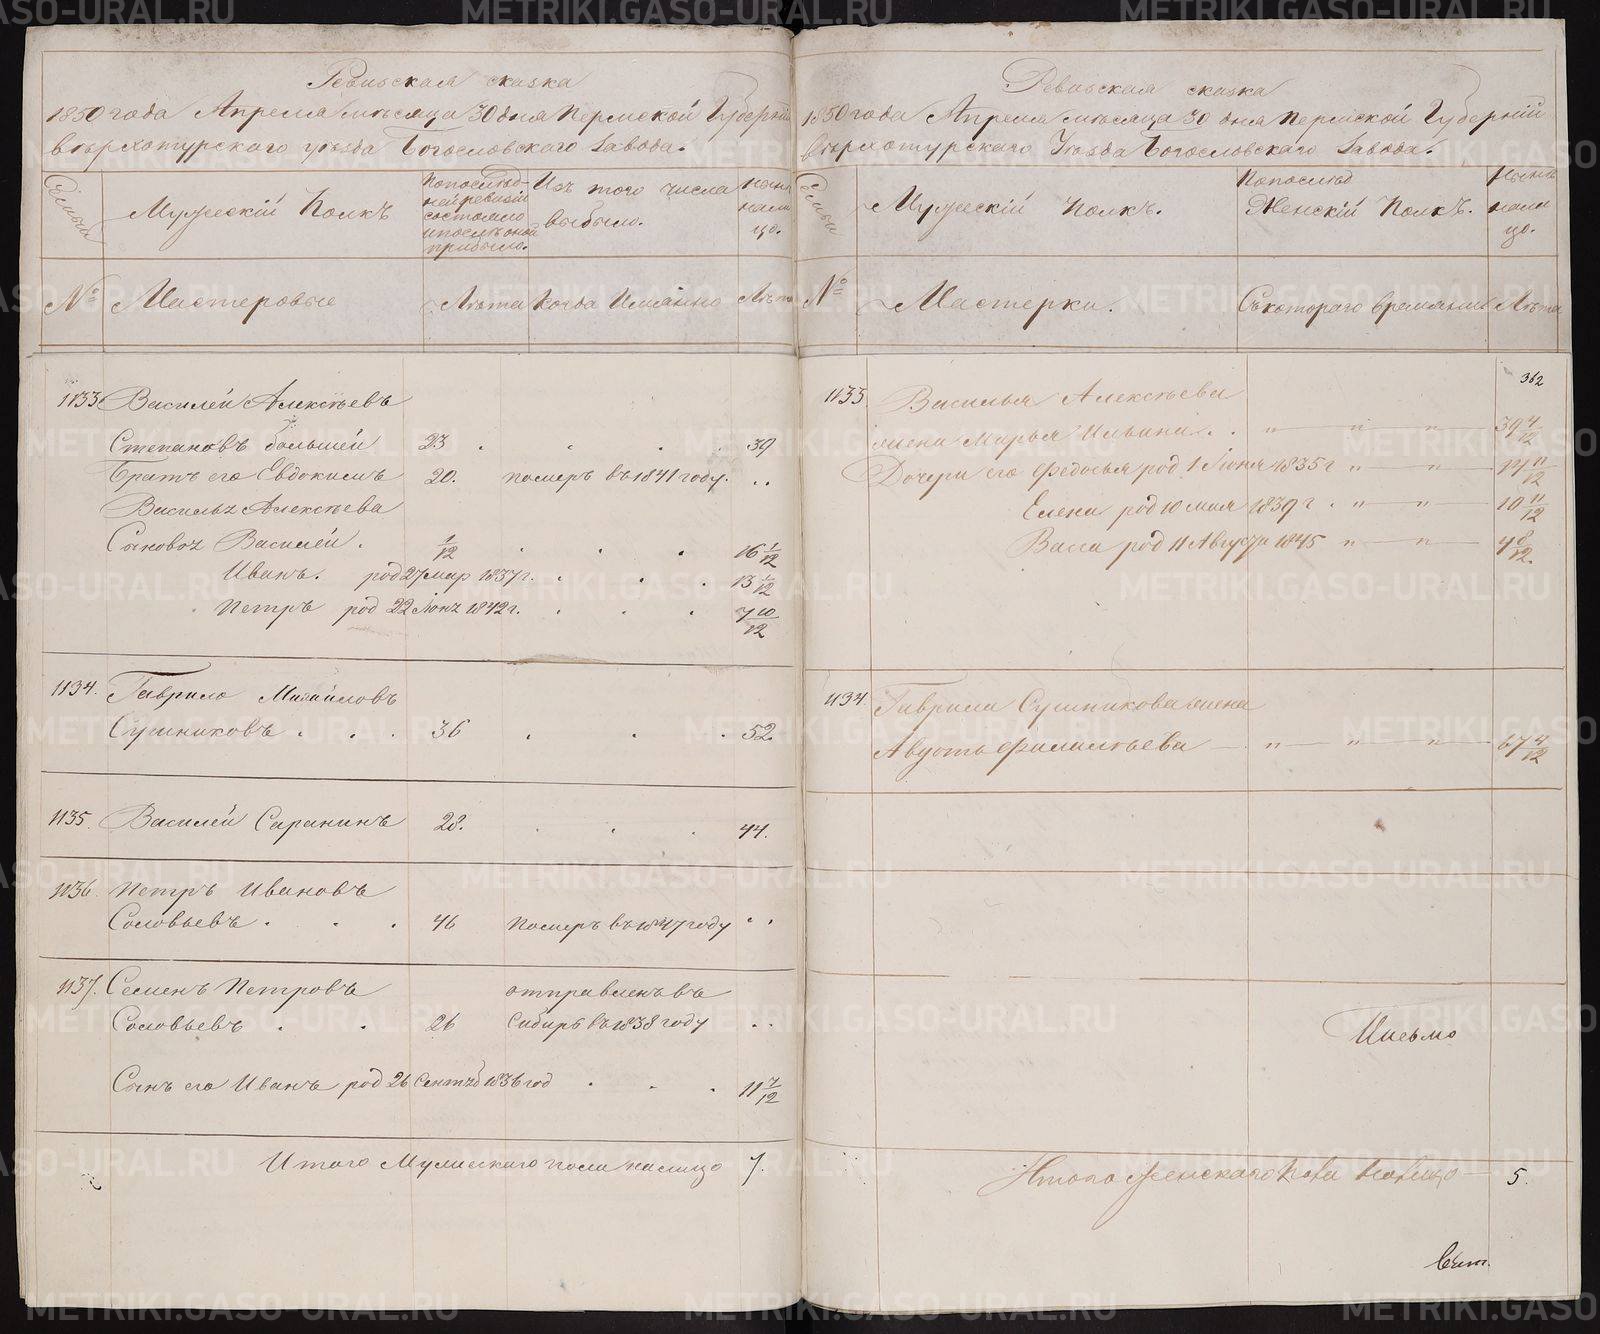 Ревизская сказка
1850 года Апреля месяца 30 дня Пермской Губерніи
верхотурского уѣзда Богословского Завода.
Семьи
Мужескій Полкъ
Попослѣд-
ней ревизіи
состояло
и послѣ оной
прибыло.
Изъ того числа
выбыло.
нынѣ
нали
цо.
№ Мастеровые Лѣта Когда Имянно Лѣта
1133 Василей Алексѣевъ
Степановъ большей 23 39
Братъ его Евдокимъ 20. померъ въ 1841 году.
Василья Алексѣева
Сыновья Василей. 1/12 16 1/12
Иванъ. род 27 мар 1837 г. 13 1/12
Петръ род 22 Іюня 1842 г. 7 10/12
1134. Гаврило Михайловъ
Сушниковъ 36 52.
1135. Василей Саранинъ 28. 44.
1136. Петръ Ивановъ
Соловьевъ 46 Померъ въ 1847 году
1137. Семенъ Петровъ отправленъ въ
Соловьевъ 26 Сибирь въ 1838 году
Сынъ его Иванъ род 26 Сентяб 1836 год 11 7/12
Итого Мужескаго пола налицо 7.
Ревизская сказка
1850 года Апреля месяца 30 дня Пермской Губерніи
верхотурского Уѣзда Богословского Завода.
Семьи
Мужескій Полкъ.
Попослѣд
Женскій Полкъ.
Нынѣ
нали
цо.
№ Мастерки. Съ котораго времяни Лѣта
362
1133 Василья Алексѣева
жена Марья Ильина 39 4/12
Дочери его Федосья род 1 Іюня 1835 г 14 11/12
Елена род 10 мая 1839 г. 10 11/12
Васса род 11 Августа 1845 4 8/12.
1134. Гаврили Сушникова жена
Авдотья Филатьева 67 4/12
Письмо
Итого Женскаго Пола налицо 5.